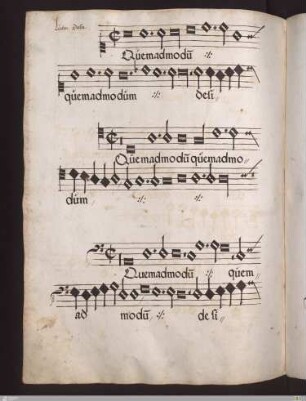 Quemadmodū
quemadmodum desi
Quemadmodū quemadmo
dum
Quemadmodū quem
ad modū de si